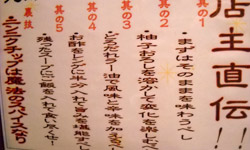 店主直伝!!
其の1
・まずはそのままを味わうべし
其の2
・柚子おろしを溶かして変化を楽しむべし
其の3
油の風味と辛味を加える
其の4
・お酢をレンゲに半分
其の5
残ったスープにご飯を入れて食い尽くせ!
裏技
ニンニクチップは魔法のスパイスなり